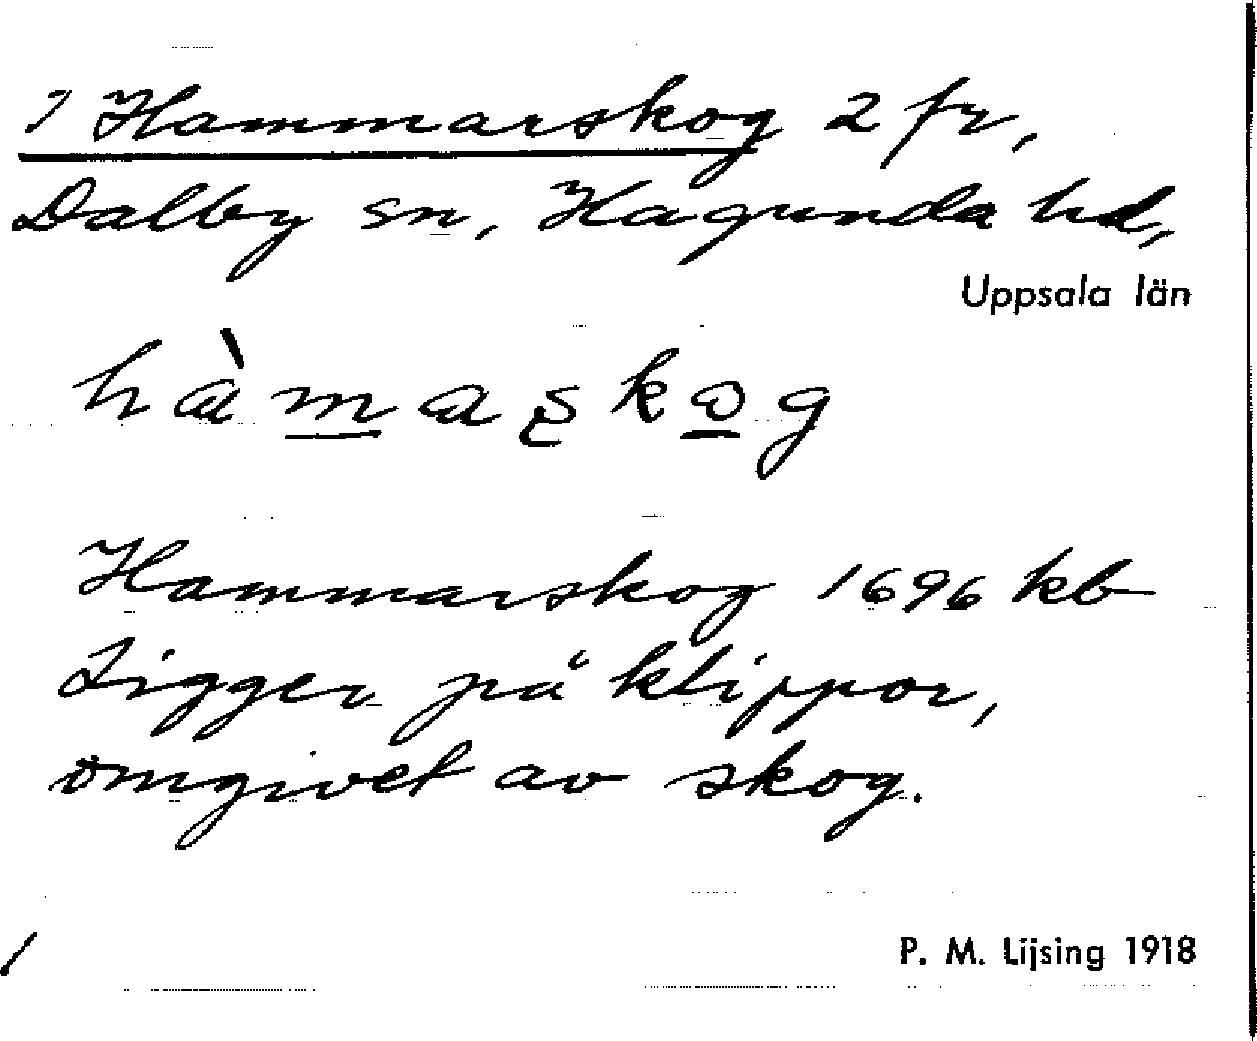 1 Hammarskog 2 fr,
Dalby sn, Hagunda hd,
Uppsala län
hàmaskog
Hammarskog 1696 kb
Ligger på klippor,
omgivet av skog.
1
P. M. Lijsing 1918